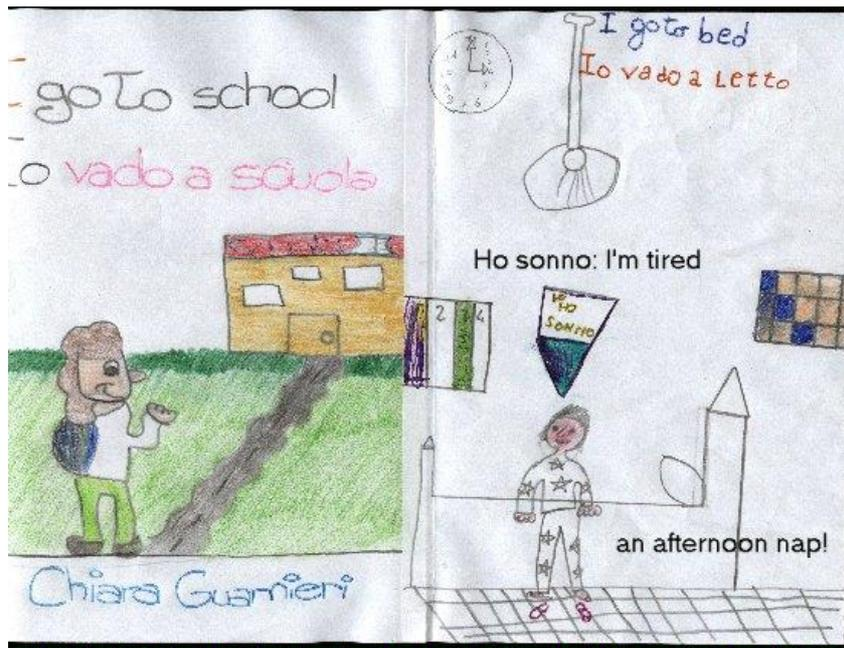 I go To school
Io vado a scuola
Chiara Guarnieri
I go to bed
Io vado a Letto
Ho sonno: I'm tired
2 3 4
IO HO
SONNO
an afternoon nap!